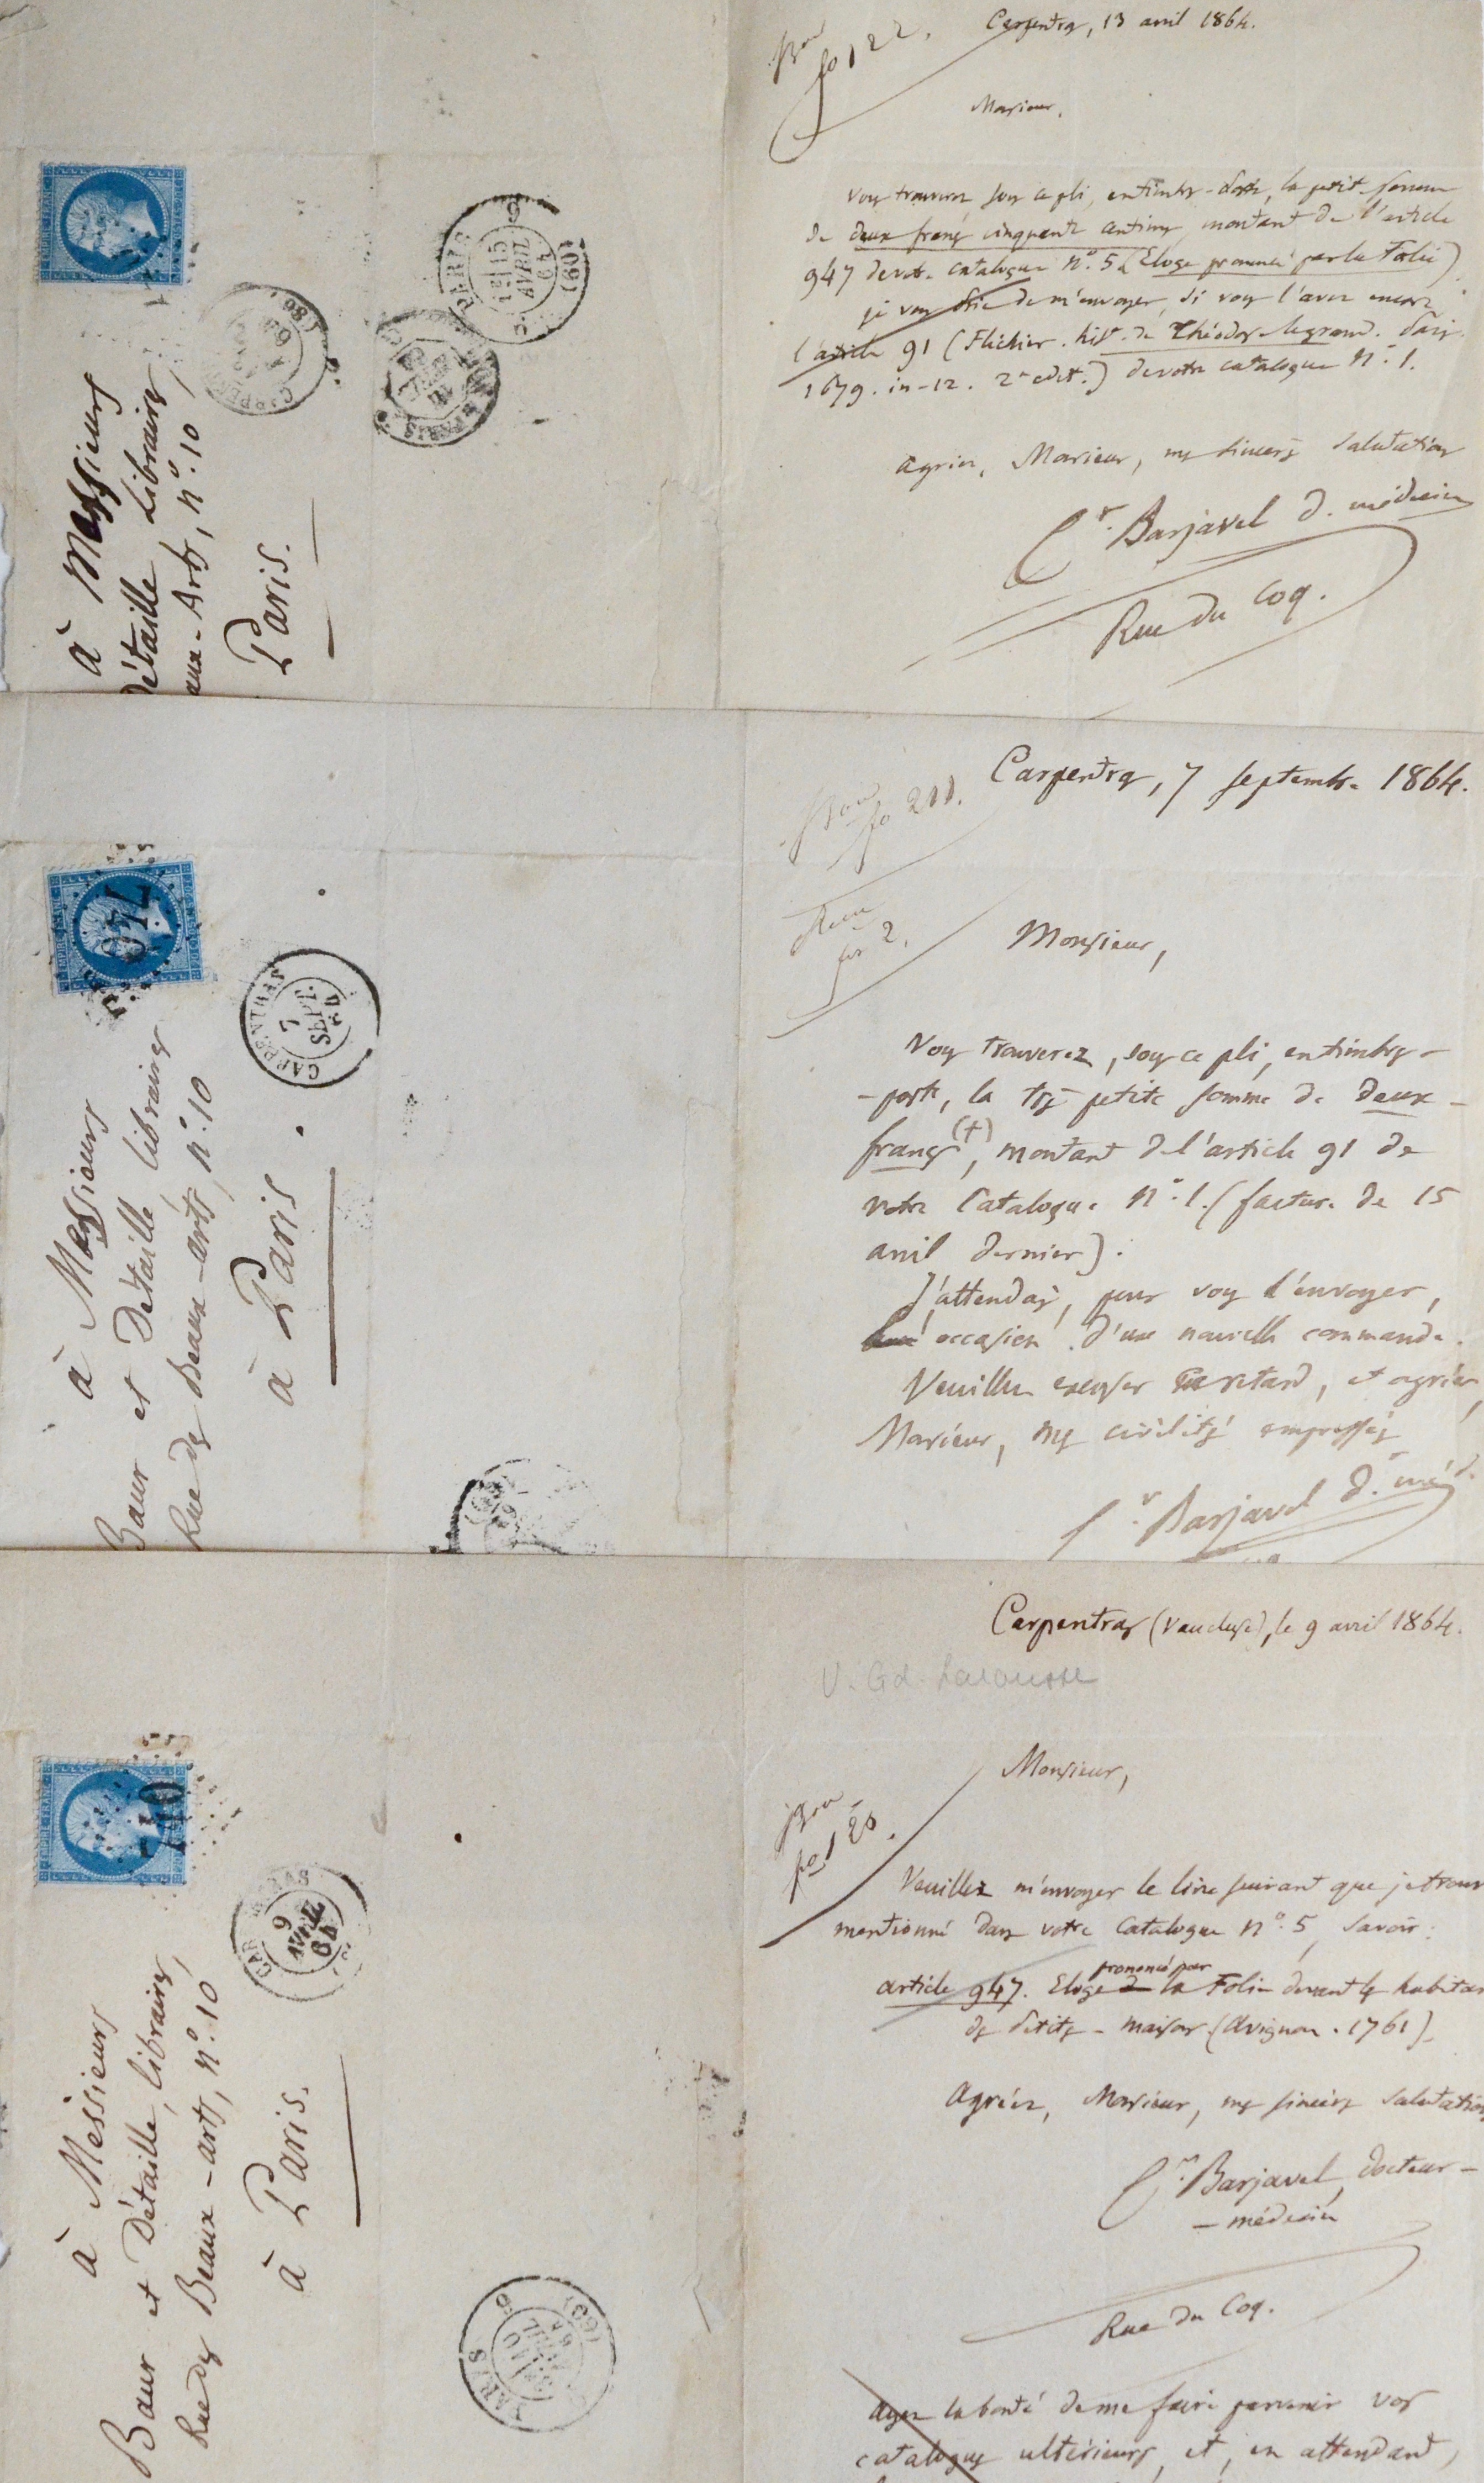 Carpentras, 13 avril 1864.
Monsieur,
vous trouverez sous ce pli, en timbres-poste, la petite somme
de deux francs cinquante centimes, montant de l'article
947 de votre catalogue n.º 5 (Eloge prononcé par la Folie)
je vous prie de m'envoyer, si vous l'avez encore
l'article 91 (Fléchier. hist. de Théodose le grand. Paris
1679. in-12. 2e edit.) de votre catalogue n.º 1.
agréez, Monsieur, mes sincères salutations
Cr. Barjavel d. médecin
Rue du Coq.
à Messieurs
Détaille Libraires,
aux-Arts, n.º 10
Paris.
PARIS
AVRIL
64
(60)
Carpentras, 7 septembre 1864.
fo 211.
fo 2.
Monsieur,
Vous trouverez, sous ce pli, en timbres-
-poste, la très petite somme de deux-
francs (+), montant de l'article 91 de
votre Catalogue n.º 1. (facture de 15
avril dernier).
J'attendais, pour vous l'envoyer,
occasion d'une nouvelle commande.
Veuillez excuser ce retard, et agréer,
Monsieur, mes civilités empressées
Cr. Barjavel d.r méd.
à Messieurs
Baur et Détaille, libraires
Rue des Beaux-arts, n.º 10
à Paris.
740
CARPENTRAS
7
SEPT.
64
Carpentras (Vaucluse), le 9 avril 1864.
V. Gd. Larousse
Monsieur,
Veuillez m'envoyer le livre suivant que je trouve
mentionné dans votre Catalogue n.º 5, savoir:
prononcé par
article 947. Eloge de la Folie devant les habitan
des Petites-maisons (Avignon. 1761).
Agréez, Monsieur, mes sincères salutations
Cr. Barjavel, docteur-
-médecin
Rue du Coq.
Ayez la bonté de me faire parvenir vos
catalogues ultérieurs, et, en attendant,
à Messieurs
Baur et Détaille, libraires,
Rue des Beaux-arts, n.º 10
à Paris.
740
9
AVRIL
64
PARIS
(60)